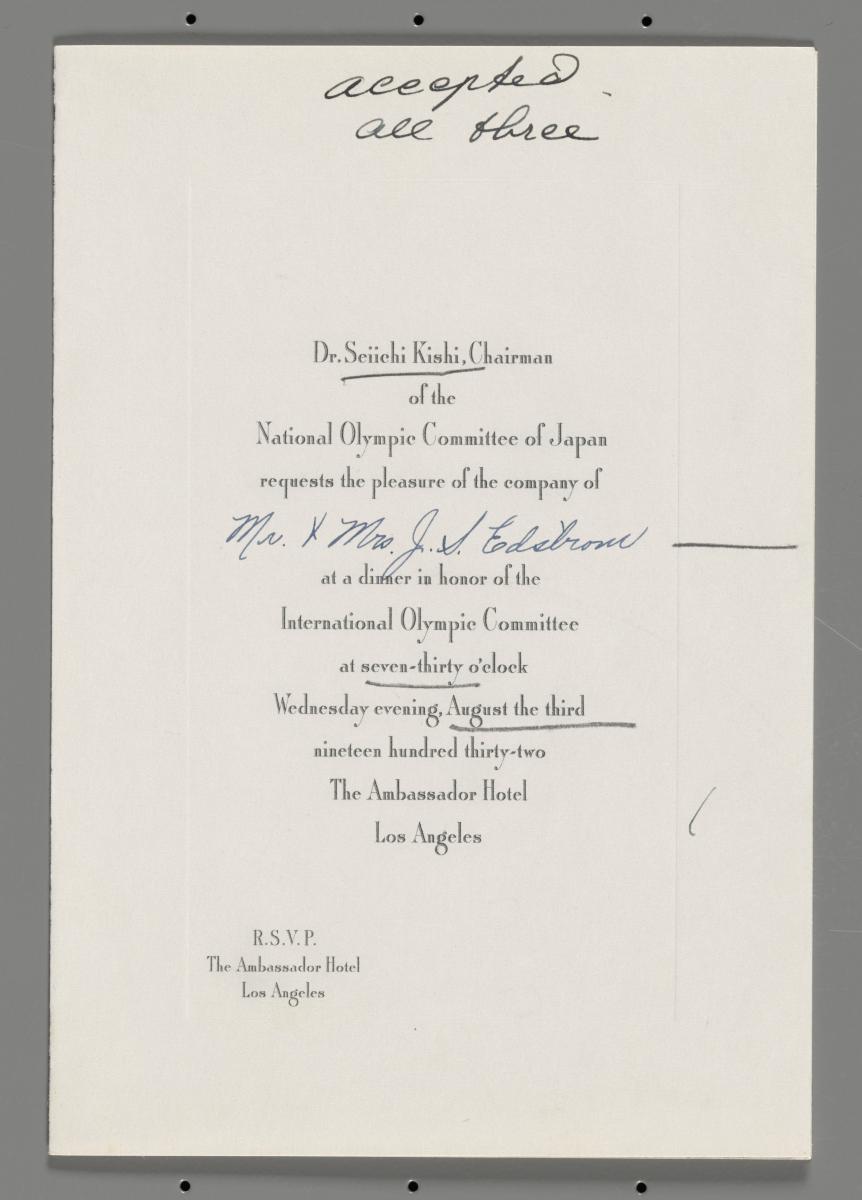 accepted
all three
Dr. Seiichi Kishi, Chairman
of the
National Olympic Committee of Japan
requests the pleasure of the company of
Mr. & Mrs. J. S. Edstrom
at a dinner in honor of the
International Olympic Committee
at seven-thirty o'clock
Wednesday evening, August the third
nineteen hundred thirty-two
The Ambassador Hotel
Los Angeles
R.S.V.P.
The Ambassador Hotel
Los Angeles